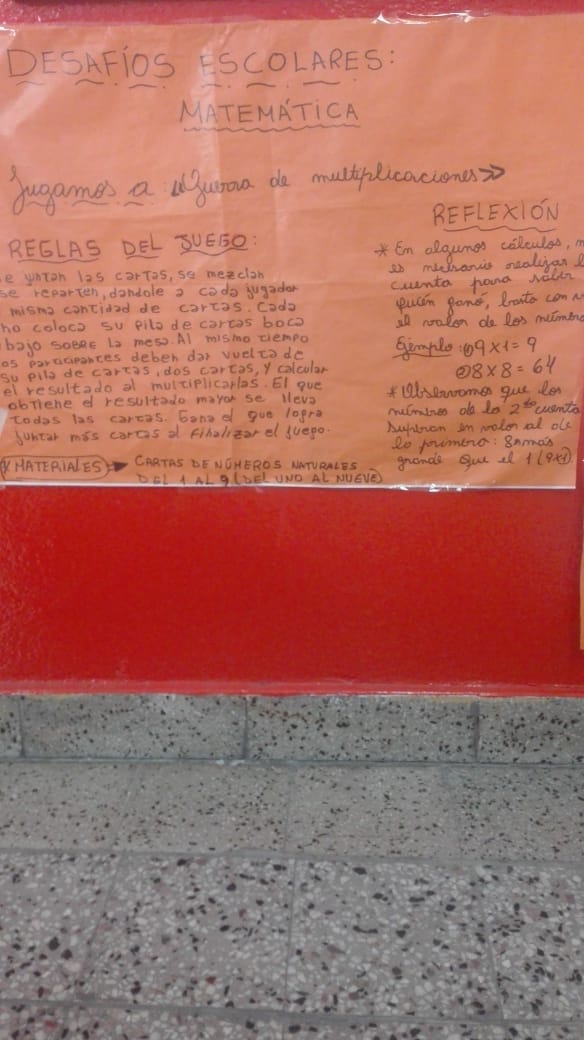 DESAFÍOS ESCOLARES:
MATEMÁTICA
Jugamos a: «Guerra de multiplicaciones»
REGLAS DEL JUEGO:
e juntan las cartas, se mezclan
se reparten, dandole a cada jugador
misma cantidad de cartas. Cada
no coloca su pila de cartas boca
bajo SOBRE la mesa. Al mismo tiempo
os participantes deben dar vuelta de
su pila de cartas, dos cartas, y calcular
el resultado al multiplicarlas. El que
obtiene el resultado mayor se lleva
todas las cartas. Gana el que logra
juntar más cartas al finalizar el juego.
* MATERIALES → CARTAS DE NÚMEROS NATURALES
DEL 1 AL 9 (DEL UNO AL NUEVE)
REFLEXIÓN
* En algunos cálculos, n
es necesario realizar l
cuenta para saber
quien ganó, basta con v
el valor de los número
Ejemplo: 9x1= 9
8x8= 64
* Observamos que los
números de la 2da cuenta
superan en valor al de
la primera: 8 más
grande que el 1 (9x1)